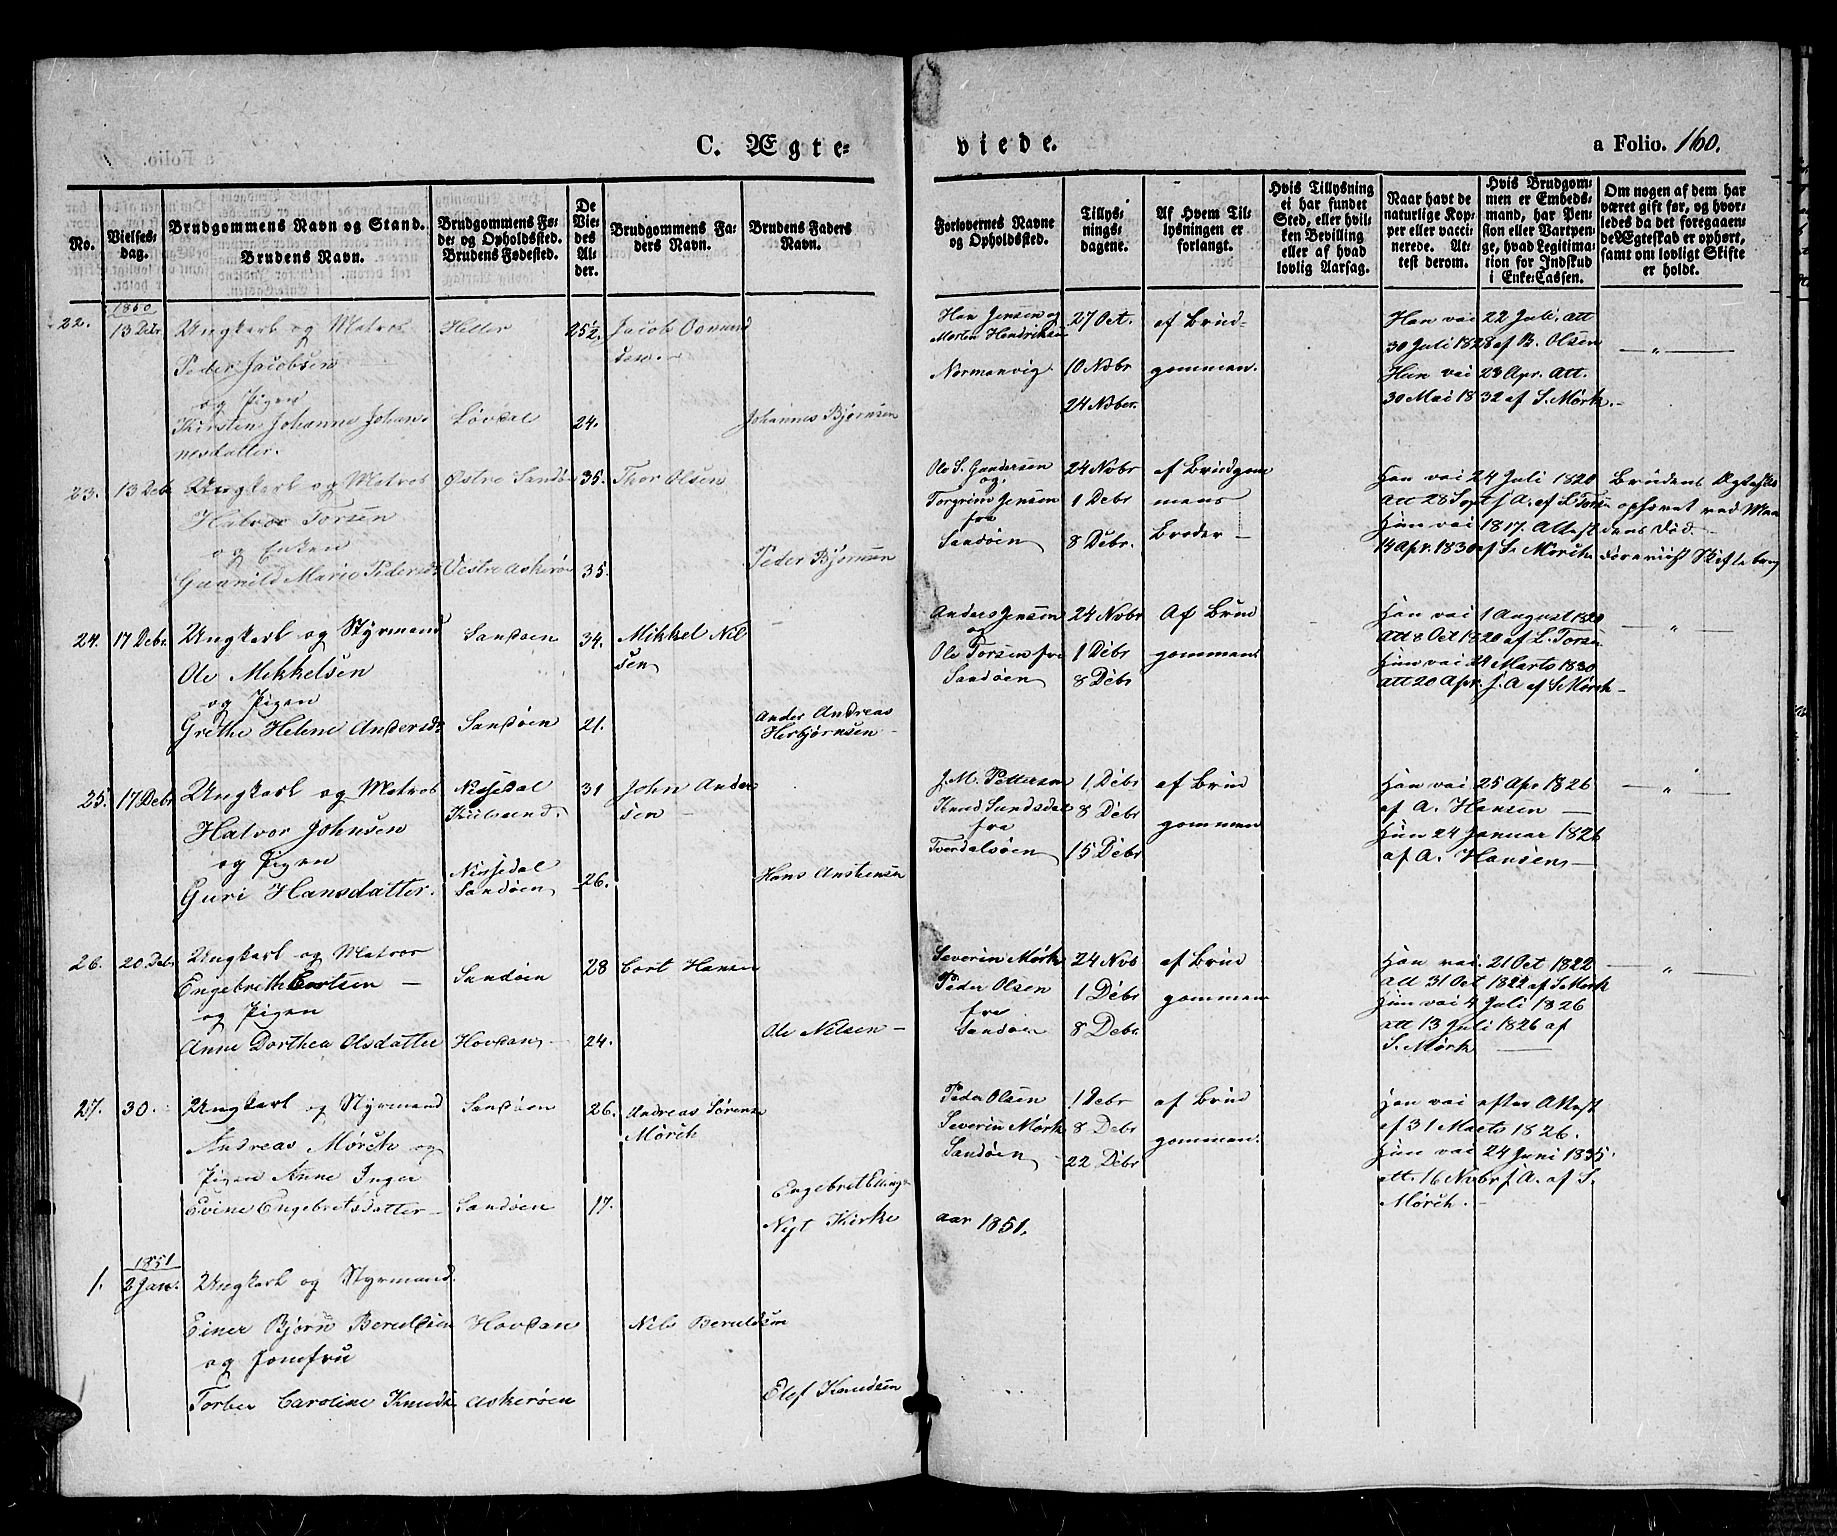 C. Ægte-
viede.
a Folio. 160.
No.
Vielses-
dag.
Brudgommens Navn og Stand.
Brudens Navn.
Brudgommens Fø-
de- og Opholdssted.
Brudens Fødested.
De
Vie-
des
Al-
der.
Brudgommens Fa-
ders Navn.
Brudens Faders
Navn.
Forlovernes Navne
og Opholdssted.
Tillys-
nings-
dagene.
Af Hvem Til-
lysningen er
forlangt.
Hvis Tillysning
ei har fundet
Sted, eller hvil-
ken Bevilling
eller af hvad
lovlig Aarsag.
Naar havt de
naturlige Kop-
per eller vacci-
nerede. At-
test derom.
Hvis Brudgom-
men er Embeds-
mand, har Pen-
sion eller Vartpen-
ge, hvad Legitima-
tion for Indskud
i Enke-Cassen.
Om nogen af dem har
været gift før, og hvor-
ledes da det foregaaen-
de Ægteskab er ophørt,
samt om lovligt Skifte
er holdt.
1850
22. 13 Debr Ungkarl og Matros
Peder Jacobsen
og Pigen
Kirsten Johanne Johan-
nesdatter.
25½ Jacob
24. Johannes Bjørnsen
Løvdal
Morten Hendriksen
Normanvig
27 Oct.
10 Nobr
24 Nober.
af Brud-
gommen.
Han vac 22 Juli. Att
30 Juli 1828 af B. Olsen
Hun vac 23 Apr. Att.
30 Mai 1832 af S. Mørk.
— „ —
23. 13 Debr Ungkarl og Matros
Halvor Torsen
og Enken
Gunnild Marie Pedersdt
Østre Sandøe 35. Thor Olsen
Vestre Askerøe 35. Peder Bjørnsen
Ole S. Gundersen
og
Torgrim Jensen
fra
Sandøen
24 Nobr
1 Debr
8 Debr.
af Brudgom
mens
Broder —
Han vac 24 Juli 1820
Att 28 Sept f. A. af L. Torsen
Hun vac 1817. Attest
14 Apr. 1830 af S. Mørch
Brudens Ægteskab
ophævet ved Man
dens Død
24. 17 Debr. Ungkarl og Styrmand
Ole Mikkelsen
og Pigen
Grethe Helene Andersdt
Sandøen 34. Mikkel Nil
sen
Sandøen 21. Ander Andreas
Herbjørnsen —
Anders Jensen
og
Ole Torsen fra
Sandøen
24 Nobr
1 Debr
8 Debr
Af Brud
gommen
Han vac 1 August 1820
Att 8 Oct 1820 af L. Torsen
Hun vac 24 Marts 1830
Att 20 Apr. f. A af S. Mørch —
— „ —
25. 17 Debr Ungkarl og Matros
Halvor Johnsen
og Pigen
Guri Hansdatter.
Nissedal
31 John Ander
sen —
Nissedal
Sandøen 26. Hans
J. M. Pettersen
Knud Sundsdal
fra
Tverdalsøen
1 Debr
8 Debr
15 Debr
af Brud
gommen
Han vac 25 Apr 1826
af A. Hansen —
Hun 24 Januar 1826
af A. Hansen —
— „ —
26. 20 Debr Ungkarl og Matros
Engebreth Cortsen —
og Pigen
Anne Dorthea Olsdatter
Sandøen 28 Cort Hansen
Hovdan — 24. Ole Nilsen —
Severin Mørk
Peder Olsen
fra
Sandøen
24 Nov
1 Debr
8 Debr
af Brud
gommen
Han vac 21 Oct 1822
Att 31 Oct 1822 af S. Mørk
Hun vac 4 Juli 1826
att 13 Juli 1826 af
S. Mørk —
— „ —
27. 30. Ungkarl og Styrmand
Andreas Mørch og
Pigen Anne Inger
Evine Engebretsdatter
Sandøen 26. Andreas Sørensen
Mørch
Sandøen 17. Engebret
Peder Olsen
Severin Mørk
Sandøen
1 Debr
8 Debr
22 Debr
af Brud
gommen.
Han vac efter Attest
af 31 Marts 1826.
Hun vac 24 Juni 1835
att. 16 Novbr f. A. af S.
Mørch. —
Nyt Kirke aar 1851.
1851
1. 2 Jan. Ungkarl og Styrmand
Einer Bjørn Beruldsen
og Jomfru
Torber Caroline Knuds
Hovdan Nils Beruldsen
Askerøen Elef Knudsen